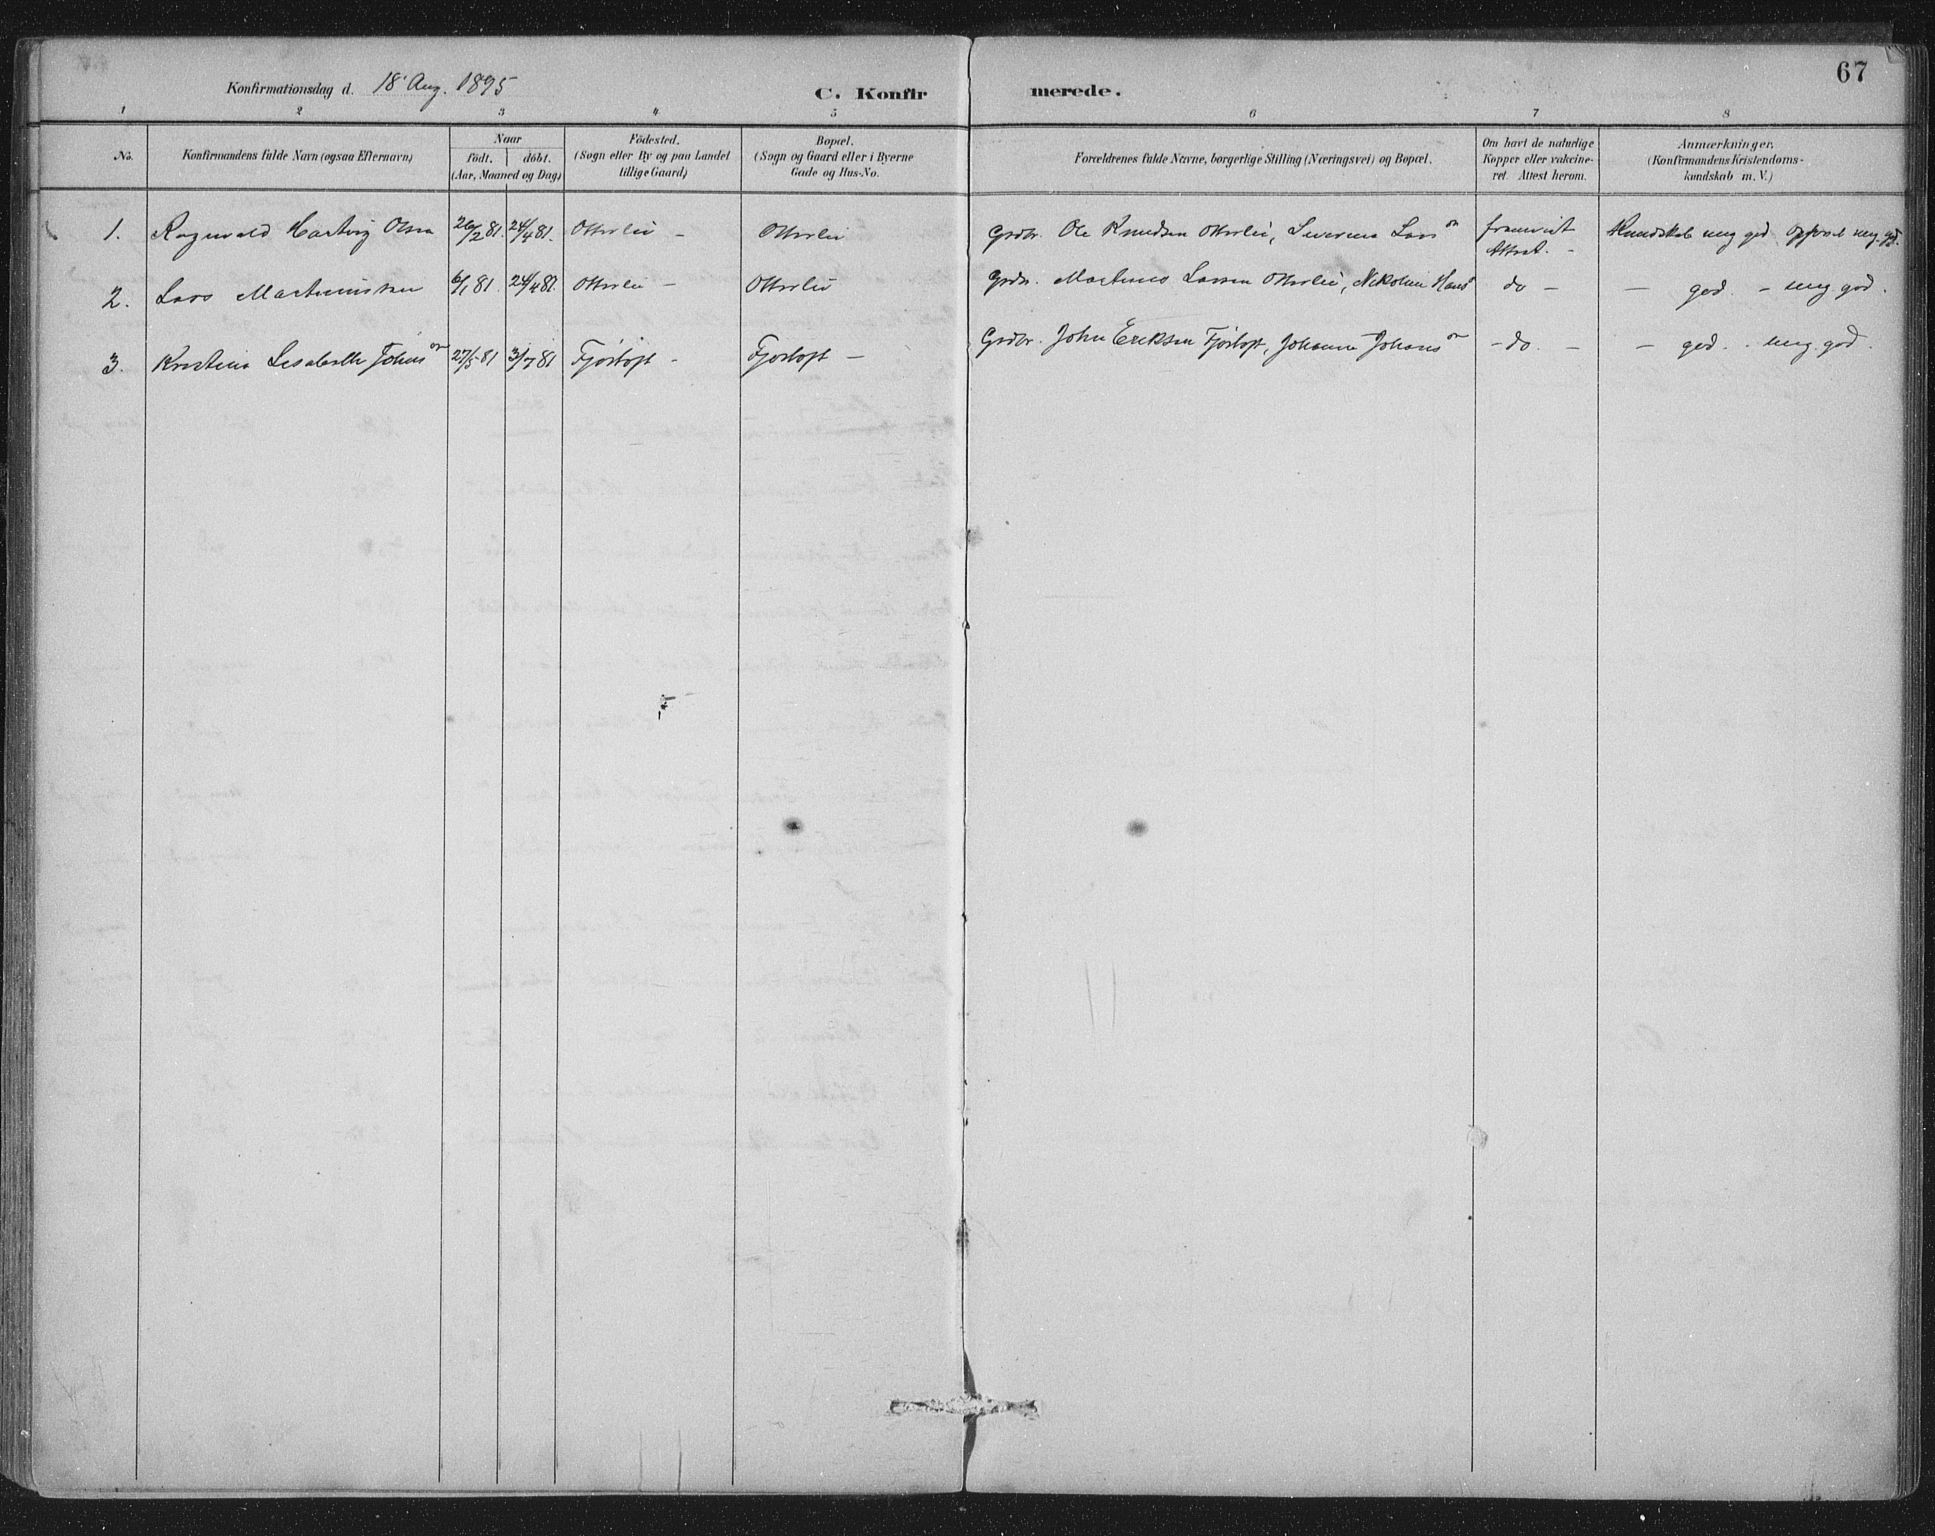 67
Konfirmationsdag d. 18 Aug. 1895 C. Konfir merede.
1 2 3 4 5 6 7 8
No. Konfirmandens fulde Navn (ogsaa Efternavn) Naar födt. döbt. (Aar, Maaned og Dag) Födested. (Sogn eller By og paa Landet tillige Gaard) Bopæl. (Sogn og Gaard eller i Byerne Gade og Hus-No. Forældrenes fulde Navne, borgerlige Stilling (Næringsvei) og Bopæl. Om havt de naturlige Kopper eller vakcineret. Attest herom. Anmærkninger. (Konfirmandens Kristendomskundskab m. V.)
1. Ragnvald Hartvig Olsen 26/2 81. 24/4 81. Otterlei - Otterlei Grdbr. Ole Knudsen Otterlei, Severine Lars fremvist Attest. - Kundskab meg. god. Opførsel meg. gd.
2. Lars Martinussen 6/1 81. 24/4 81. Otterlei - Otterlei Grdbr. Martinus Larsen Otterlei, Nikoline Hans do - - god. - meg. god.
3. Kristine Lisabeth Johns 27/5 81 3/7 81 Fjørtoft - Fjørtoft - Grdbr. John Eriksen Fjørtoft, Johanne Johans - do. - - god. - meg. god.